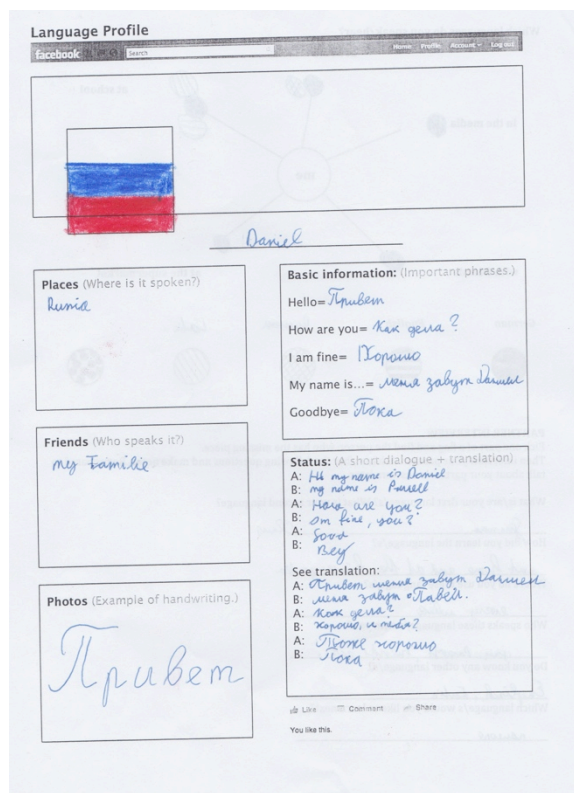 Language Profile
facebook Search Home Profile Account Log out
Daniel
Places (Where is it spoken?)
Rusia
Friends (Who speaks it?)
my Familie
Photos (Example of handwriting.)
Привет
Basic information: (Important phrases.)
Hello= Привет
How are you= Как дела?
I am fine= Хорошо
My name is...= меня завут Даниел
Goodbye= Пока
Status: (A short dialogue + translation)
A: Hi my name is Daniel
B: my name is
A: How are you?
B: om fine, you?
A: Good
B: Bey
See translation:
A: Привет меня завут Даниел
B: меня завут Павел.
A: Как дела?
B: хорошо, и тебя?
A: Тоже хорошо
B: Пока
Like Comment Share
You like this.